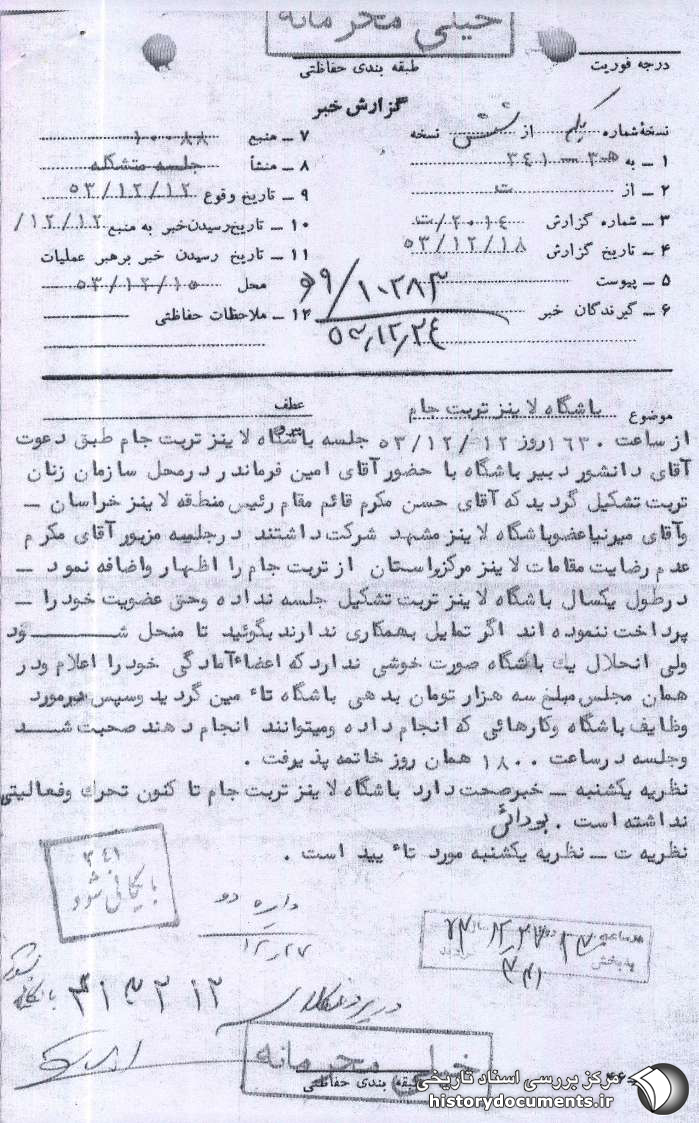 خیلی محرمانه
درجه فوریت
طبقه بندی حفاظتی
گزارش خبر
نسخهٔ شماره یکم از ششی نسخه
۱ ــ به ۳ هـ ــ ۳۴۱
۲ ــ از ت
۳ ــ شماره گزارش ۲۰۱۴ / ت
۴ ــ تاریخ گزارش ۵۳/۱۲/۱۸
۵ ــ پیوست
۶ ــ گیرندگان خبر
۷ ــ منبع ۱۰۰۸۸
۸ ــ منشأ جلسه متشکله
۹ ــ تاریخ وقوع ۵۳/۱۲/۱۲
۱۰ ــ تاریخ رسیدن خبر به منبع ۱۲/۱۲/
۱۱ ــ تاریخ رسیدن خبر برهبر عملیات
محل ۵۳/۱۲/۱۵
۱۲ ــ ملاحظات حفاظتی
۵۹/۱۰۲۸۳
۵۳/۱۲/۲۴
موضوع باشگاه لاینز تربت جام
عطف
پیرو
از ساعت ۱۶۳۰ روز ۱۲ /۵۳/۱۲ جلسه باشگاه لاینز تربت جام طبق دعوت
آقای دانشور دبیر باشگاه با حضور آقای امین فرماندر درمحل سازمان زنان
تربت تشکیل گردید که آقای حسن مکرم قائم مقام رئیس منطقه لاینز خراسان ــ
وآقای میرنیا عضو باشگاه لاینز مشهد شرکت داشتند درجلسه مزبور آقای مکرم
عدم رضایت مقامات لاینز مرکز و استان از تربت جام را اظهار واضافه نمود ــ
درطول یکسال باشگاه لاینز تربت تشکیل جلسه نداده وحق عضویت خود را ــ
پرداخت ننموده اند اگر تمایل بهمکاری ندارند بگوئید تا منحل شــــود
ولی انحلال یك باشگاه صورت خوشی ندارد که اعضاء آمادگی خود را اعلام ودر
همان مجلس مبلغ سه هزار تومان بدهی باشگاه تاء مین گردید وسپس درمورد
وظایف باشگاه وکارهائی که انجام داده ومیتوانند انجام دهند صحبت شــد
وجلسه درساعت ۱۸۰۰ همان روز خاتمه پذیرفت .
نظریه یکشنبه ــ خبرصحت دارد باشگاه لاینز تربت جام تا کنون تحرك وفعالیتی
نداشته است . بودائی
نظریه ت ــ نظریه یکشنبه مورد تاء یید است .
۳۴۱
بایگانی شود
دایره دو
۱۲/۲۷
۳۴۱
در پرونده کلاسه
۳۱۳۲۱۲
خیلی محرمانه
طبقه بندی حفاظتی
مرکز بررسی اسناد تاریخی
historydocuments.ir